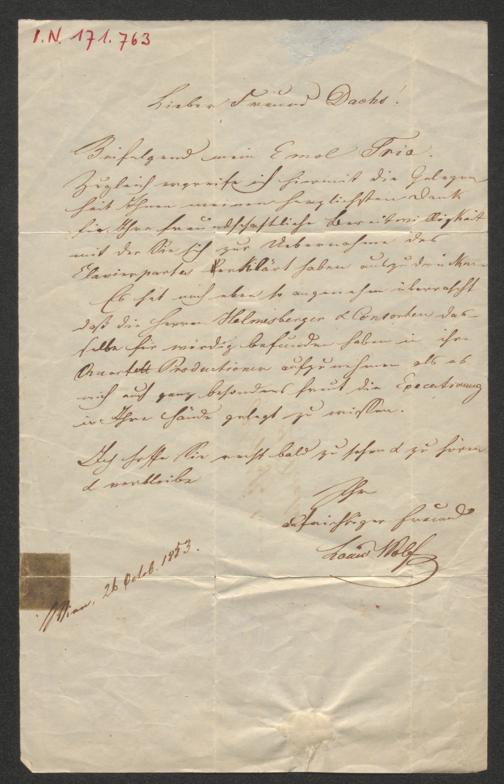 I.N. 171.763
Lieber Freund Dachs!
Beifolgend mein E moll Trio.
Zugleich ergreife ich hiermit die Gelegen
heit Ihnen meinen herzlichsten Dank
für Ihre freundschaftliche Bereitwilligkeit
mit der Sie sich zur Uebernahme des
Clavierpartes erklärt haben auszudrücken.
Es hat mich eben so angenehm überrascht
daß die Herren Helmesberger & Consorten das-
selbe für würdig befunden haben in ihre
Quartett Productionen aufzunehmen als es
mich auch ganz besonders freut die Executirung
in Ihre Hände gelegt zu wissen.
Ich hoffe Sie recht bald zu sehen & zu hören
& verbleibe
Ihr
aufrichtiger Freund
Louis Wolf
Wien, 26 Octob. 1853.